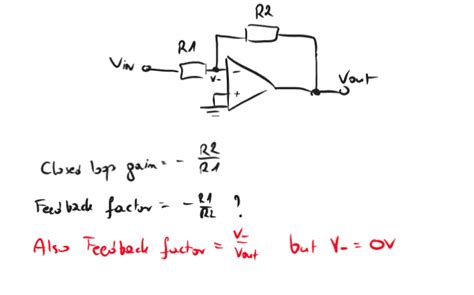 R2
R1
Vin
V-
-
+
Vout
Closed loop gain = - R2/R1
Feedback factor = - R1/R2 ?
Also Feedback factor = V-/Vout but V- = 0V